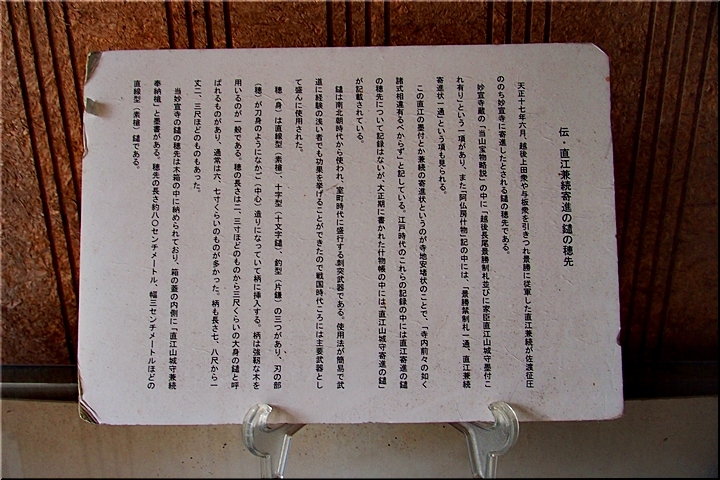 伝・直江兼続寄進の鑓の穂先
天正十七年六月、越後上田衆や与板衆を引きつれ景勝に従軍した直江兼続が佐渡征圧
ののち妙宣寺に寄進したとされる鑓の穂先である。
妙宣寺蔵の「当山宝物略説」の中に「越後長尾景勝制札並びに家臣直江山城守墨付こ
れ有り」という一項があり、また「阿仏房什物」記の中には、「景勝禁制札一通、直江兼続
寄進状一通」という項も見られる。
この直江の墨付とか兼続の寄進状というのが寺地安堵状のことで、「寺内前々の如く
諸式相違有るべからず」と記している。江戸時代のこれらの記録の中には直江寄進の鑓
の穂先について記録はないが、大正期に書かれた什物帳の中には「直江山城守寄進の鑓」
が記載されている。
鑓は南北朝時代から使われ、室町時代に盛行する刺突武器である。使用法が簡易で武
道に経験の浅い者でも功果を挙げることができたので戦国時代ころには主要武器とし
て盛んに使用された。
穂(身)は直線型(素槍)、十字型(十文字鑓)、鈎型(片鎌)の三つがあり、刃の部
(穂)が刀身のようになかご(中心)造りになっていて柄に挿入する。柄は強靭な木を
用いるのが一般である。穂の長さは二、三寸ほどのものから三尺くらいの大身の鑓と呼
ばれるものがあり、通常は六、七寸くらいのものが多かった。柄も長さ七、八尺から一
丈二、三尺ほどのものもあった。
当妙宣寺の鑓の穂先は木箱の中に納められており、箱の蓋の内側に「直江山城守兼続
奉納槍」と墨書がある。穂先の長さ約八〇センチメートル、幅三センチメートルほどの
直線型(素槍)鑓である。